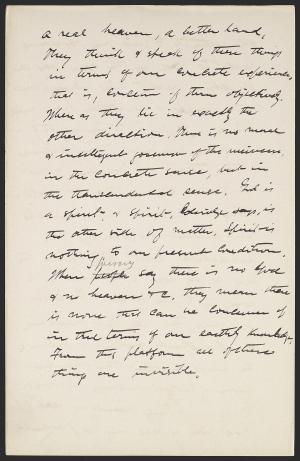 a real heaven, a better land,
They think & speak of these things
in terms of our concrete experience,
that is, conceive of them objectively.
When as they lie in exactly the
other direction. There is no moral
& intelligent governor of the universe,
in the concrete sense, but in
the transcendental sense. God is
a spirit - & spirit, Coleridge says, is
the other side of matter. Spirit is
nothing to our present condition.
When people say there is no God
& no heaven &c, they mean there
is none that can be conceived of
in the terms of our earthly knowledge.
From this platform all of these
things are invisible.